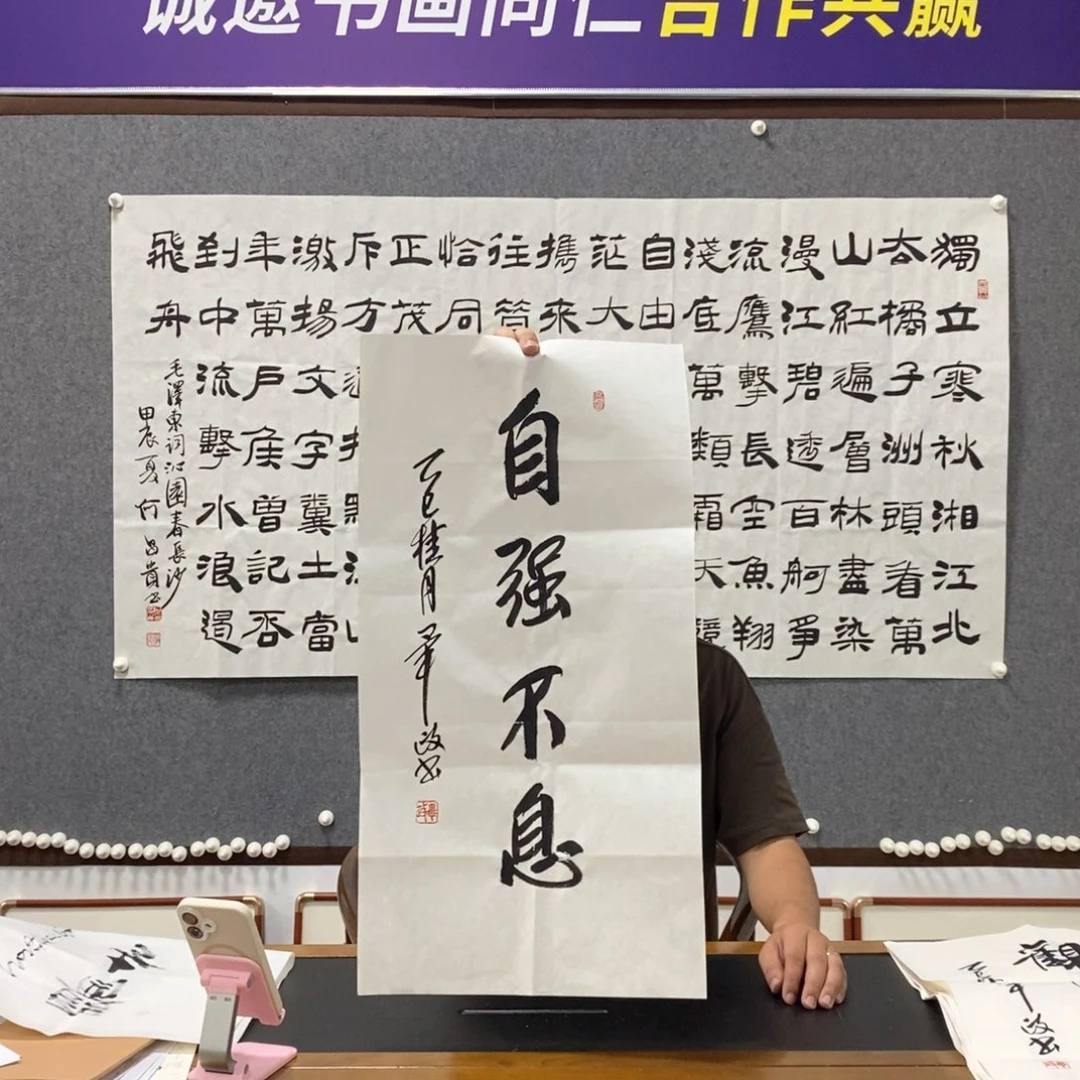 诚邀书画同仁合作共赢
獨立寒秋湘江北
去橘子洲頭看萬
山紅遍層林盡染
漫江碧透百舸爭
流鷹擊長空魚翔
淺底萬類霜天競
自由
茫大
攜來
往
恰同
正茂
斥方
激揚文字糞土當
年萬戶侯曾記否
到中流擊水浪遏
飛舟
毛澤東詞沁園春長沙
甲辰夏何昌貴书
自强不息
乙巳桂月
觀